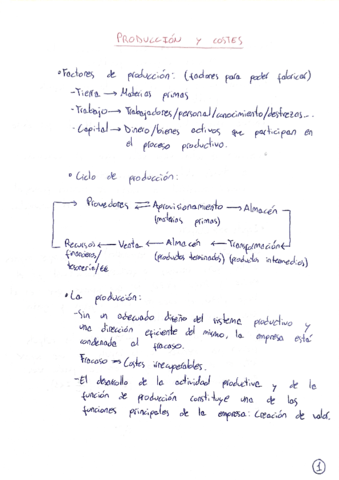 PRODUCCIÓN Y COSTES
• Factores de producción: (factores para poder fabricar)
- Tierra → Materias primas
- Trabajo → Trabajadores/personal/conocimiento/destrezas...
- Capital → Dinero/bienes activos que participan en
el proceso productivo.
• Ciclo de producción:
→ Proveedores ⇌ Aprovisionamiento → Almacén
(materias primas)
Recursos ← Venta ← Almacén ← Transformación ←
financieros/ (productos terminados) (productos intermedios)
tesorería/
• La producción:
- Sin un adecuado diseño del sistema productivo y
una dirección eficiente del mismo, la empresa está
condenada al fracaso.
Fracaso → Costes irrecuperables.
- El desarrollo de la actividad productiva y de la
función de producción constituye una de las
funciones principales de la empresa: Creación de valor.
1